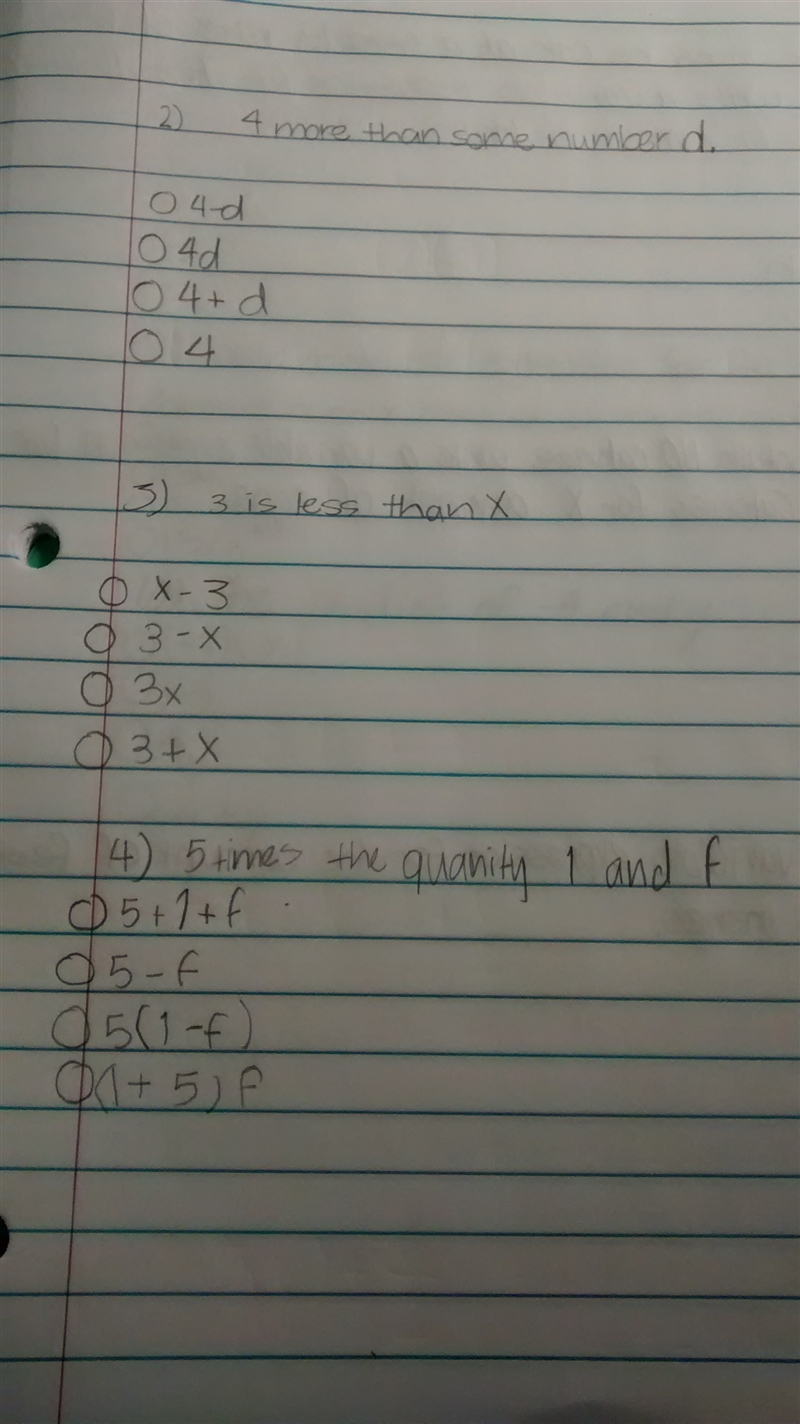 2) 4 more than some number d.
O 4-d
O 4d
O 4+ d
O 4
3) 3 is less than X
O x - 3
O 3 - x
O 3x
O 3 + X
4) 5 times the quanity 1 and f
O 5 + 1 + f
O 5 - f
O 5(1 - f)
O (1 + 5) f